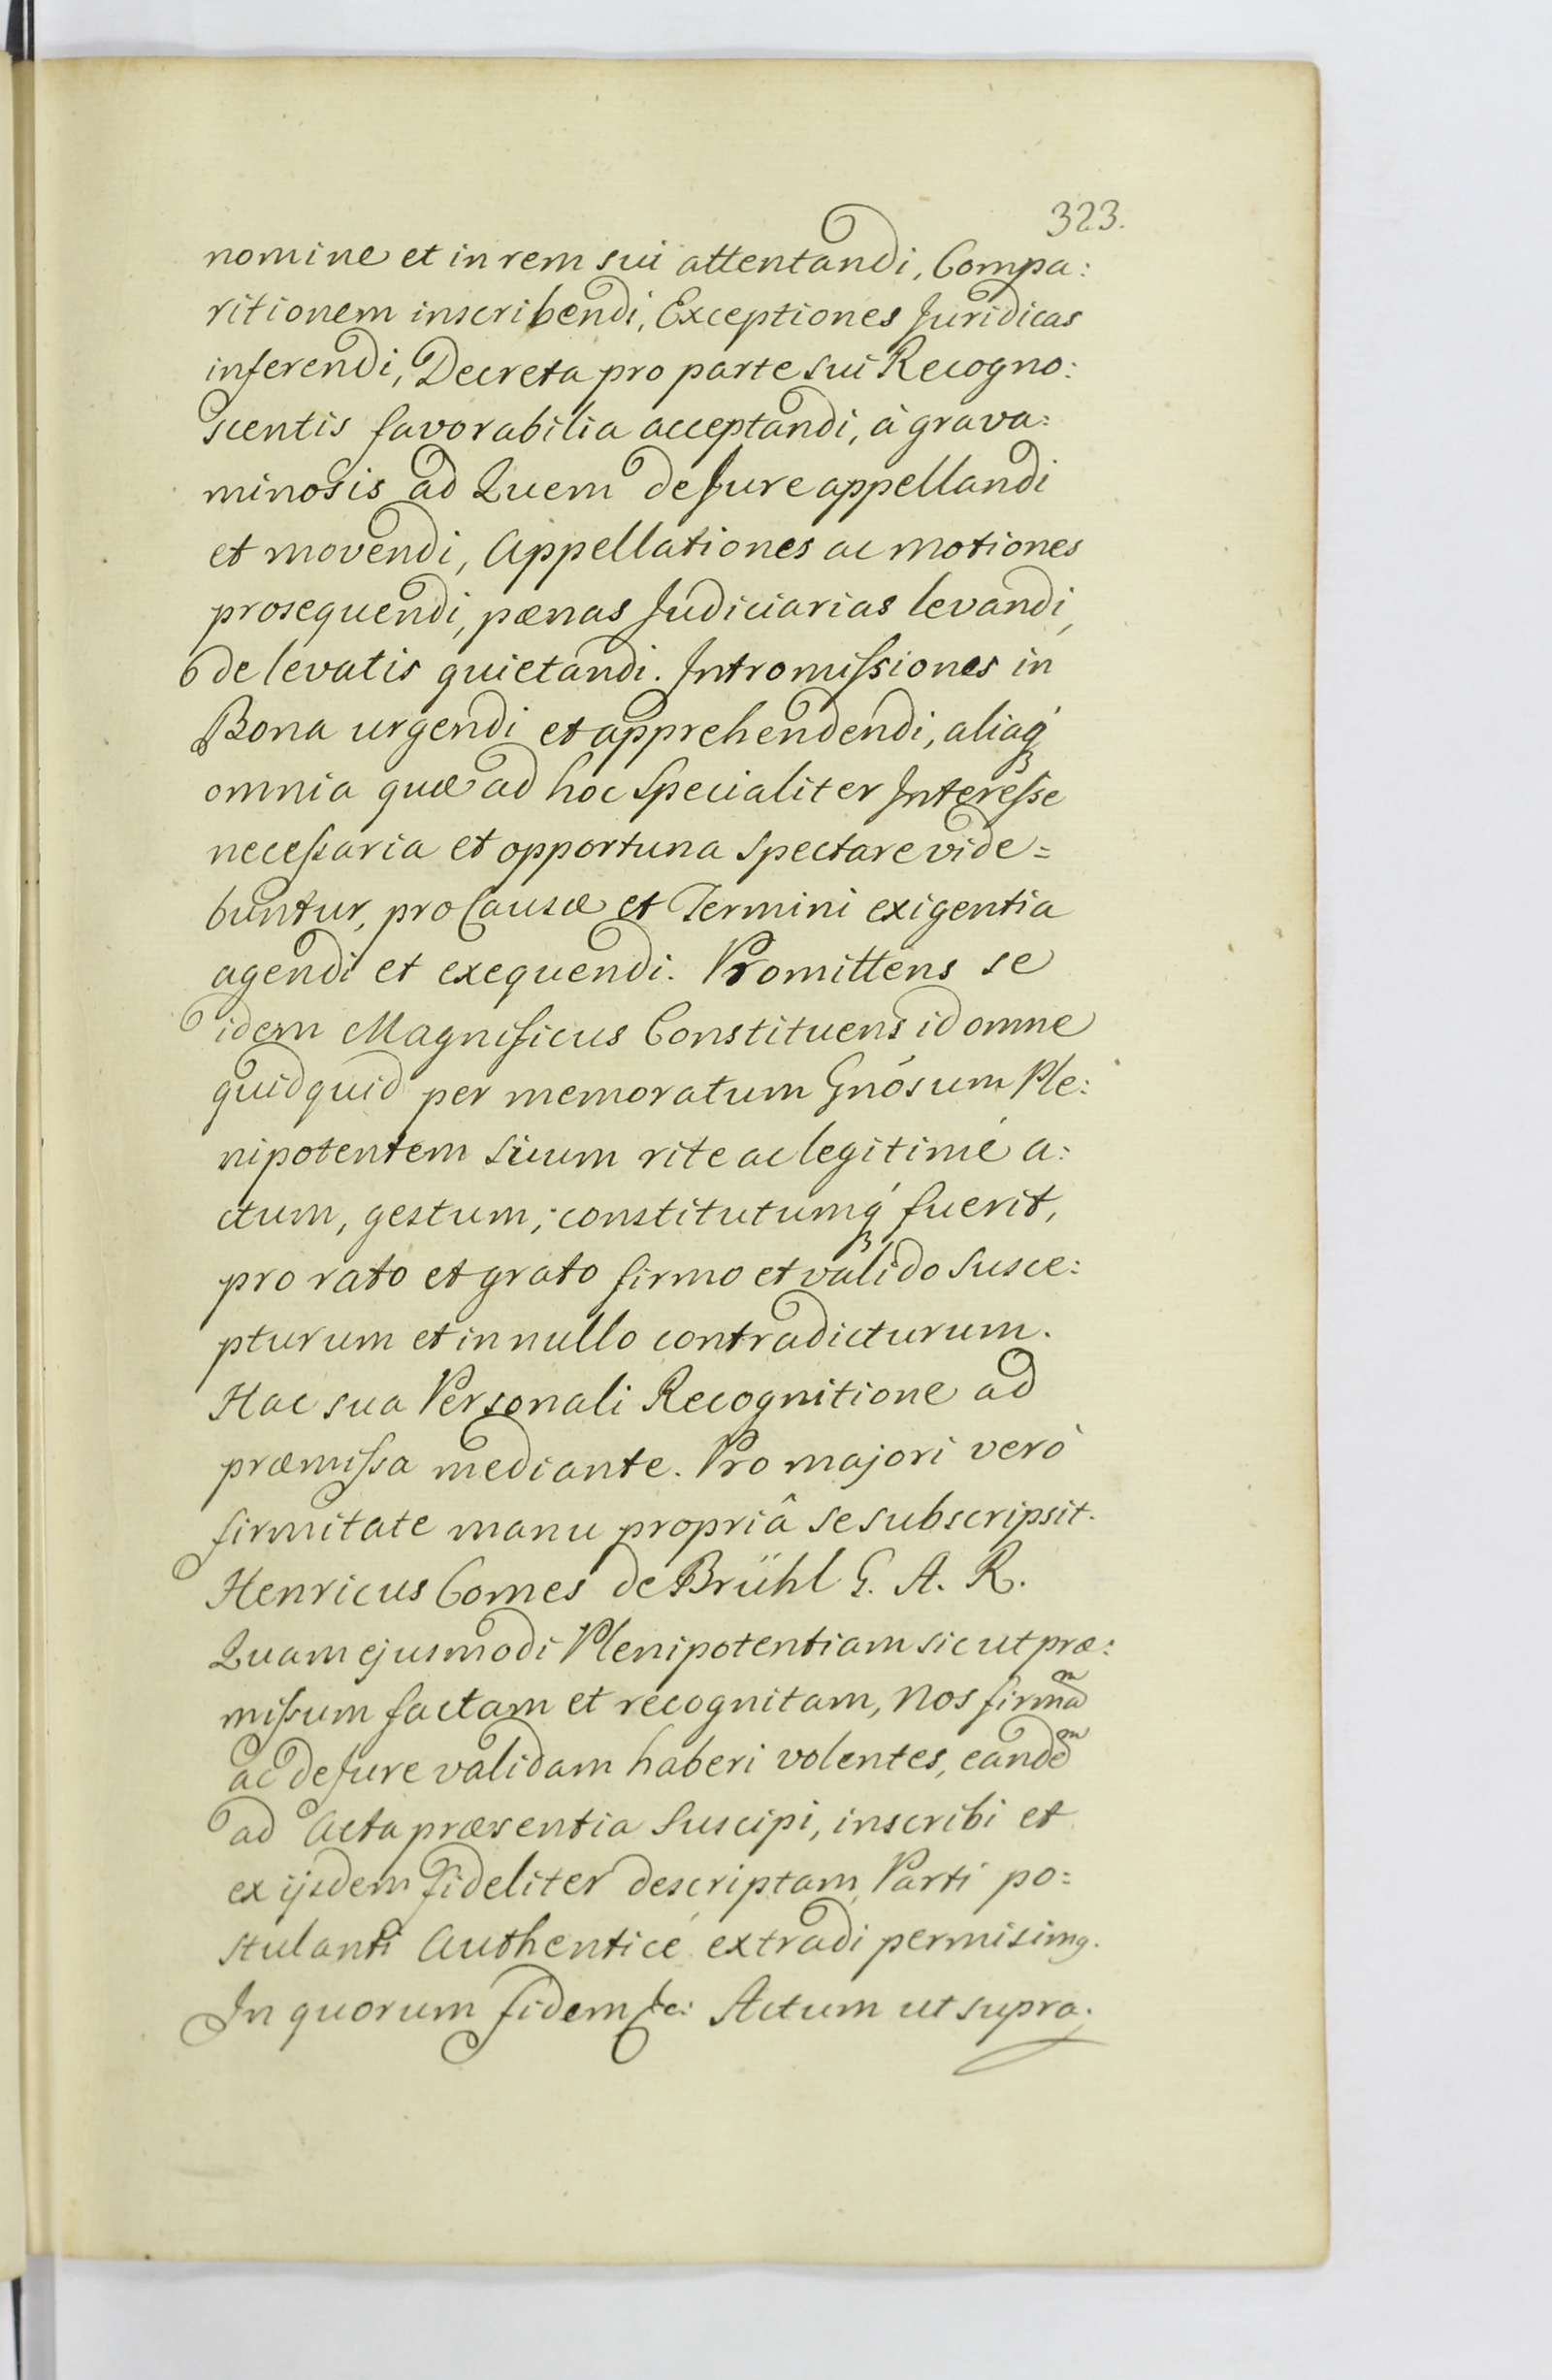 323.
nomine et in rem sui attentandi, Compa:
ritionem inscribendi, Exceptiones Juridicas
inferendi, Decreta pro parte sui Recogno:
scentis favorabilia acceptandi, à grava:
minosis ad Quem de Jure appellandi
et movendi, Appellationes ac motiones
prosequendi, pænas Judiciarias levandi,
de levatis quietandi. Intromissiones in
Bona urgendi et apprehendendi, aliaq́
omnia quæ ad hoc specialiter Interesse
necessaria et opportuna spectare vide=
buntur, pro Causæ et Termini exigentia
agendi et exequendi. Promittens se
idem Magnificus Constituens id omne
quidquid per memoratum Gnósum Ple:
nipotentem suum rite ac legitimé a:
ctum, gestum, constitutumq́ fuerit,
pro rato et grato firmo et valido susce:
pturum et in nullo contradicturum.
Hac sua Personali Recognitione ad
præmissa mediante. Pro majori verò
firmitate manu propriâ se subscripsit.
Henricus Comes de Brühl G. A. R.
Quam ejusmodi Plenipotentiam sic ut præ:
missum factam et recognitam, Nos firmaᵐ
ac de Jure validam haberi volentes, eandeᵐ
ad Acta præsentia suscipi, inscribi et
ex ijsdem fideliter descriptam, Parti po=
stulanti Authenticé extradi permisimꝰ.
In quorum fidem &c: Actum ut supra.